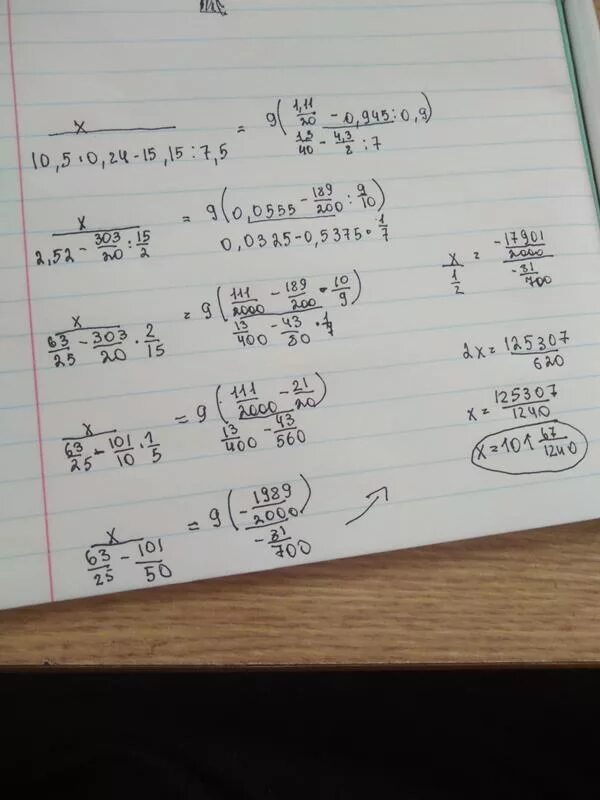 x / (10,5·0,24-15,15:7,5) = 9(1,11/20 - 0,945:0,9) / (1,3/40 - 4,3/8 : 7)
x / (2,52 - 303/20 : 15/2) = 9(0,0555 - 189/200 : 9/10) / (0,0325-0,5375·1/7)
x / (63/25 - 303/20 · 2/15) = 9(111/2000 - 189/200 · 10/9) / (13/400 - 43/80 · 1/7)
x / (63/25 - 101/10 · 1/5) = 9(111/2000 - 21/20) / (13/400 - 43/560)
x / (63/25 - 101/50) = 9(-1989/2000) / (-31/700)
x / (1/2) = (-17901/2000) / (-31/700)
2x = 125307/620
x = 125307/1240
x = 101 67/1240